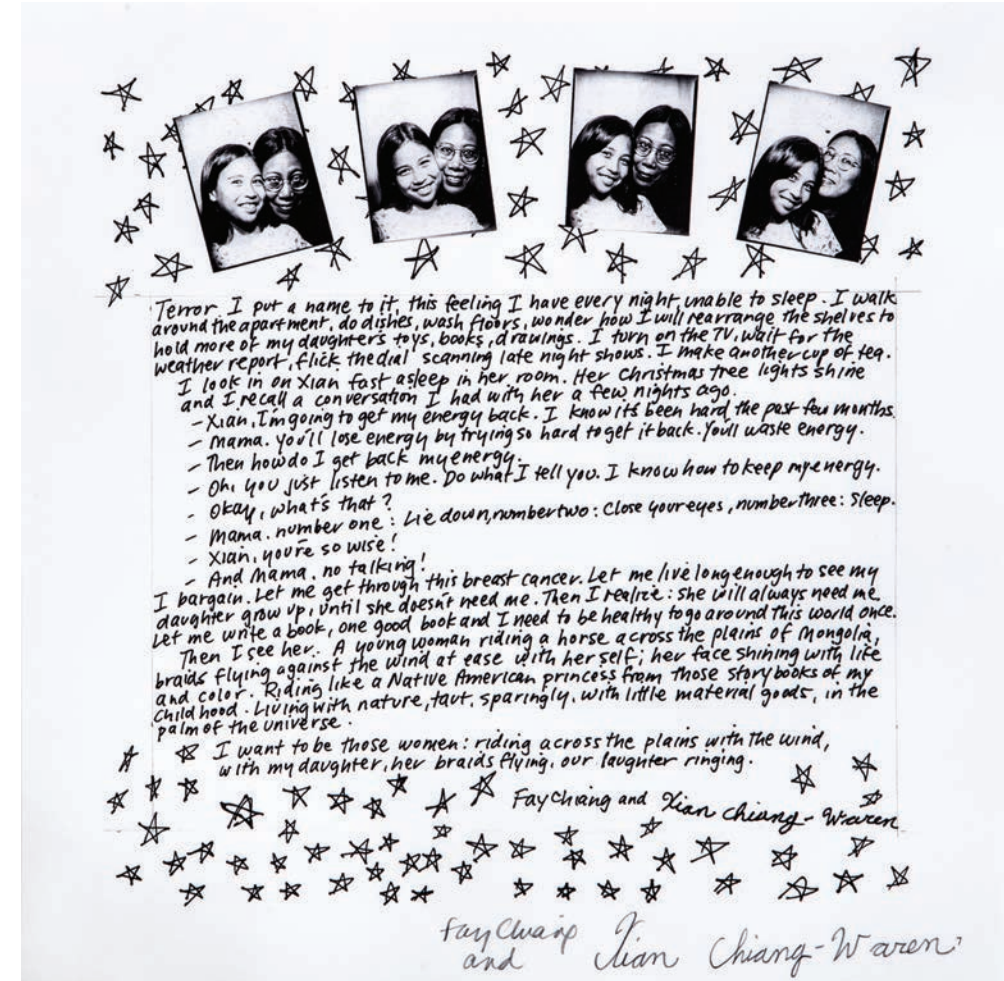 Terror. I put a name to it, this feeling I have every night, unable to sleep. I walk
around the apartment, do dishes, wash floors, wonder how I will rearrange the shelves to
hold more of my daughter's toys, books, drawings. I turn on the TV, wait for the
weather report, flick the dial scanning late night shows. I make another cup of tea.
I look in on Xian fast asleep in her room. Her christmas tree lights shine
and I recall a conversation I had with her a few nights ago.
- Xian, I'm going to get my energy back. I know it's been hard the past few months.
- Mama. you'll lose energy by trying so hard to get it back. You'll waste energy.
- Then how do I get back my energy.
- Oh, you just listen to me. Do what I tell you. I know how to keep my energy.
- Okay, what's that?
- Mama. number one: Lie down, number two: Close your eyes, number three: Sleep.
- Xian, you're so wise!
- And Mama, no talking!
I bargain. Let me get through this breast cancer. Let me live long enough to see my
daughter grow up, until she doesn't need me. Then I realize: she will always need me.
Let me write a book, one good book and I need to be healthy to go around this world once.
Then I see her. A young woman riding a horse across the plains of Mongolia,
braids flying against the wind at ease with herself; her face shining with life
and color. Riding like a Native American princess from those storybooks of my
childhood. Living with nature, taut, sparingly, with little material goods, in the
palm of the universe.
I want to be those women: riding across the plains with the wind,
with my daughter, her braids flying, our laughter ringing.
Fay Chiang and Xian Chiang-Waren
Fay Chiang
and Xian Chiang-Waren